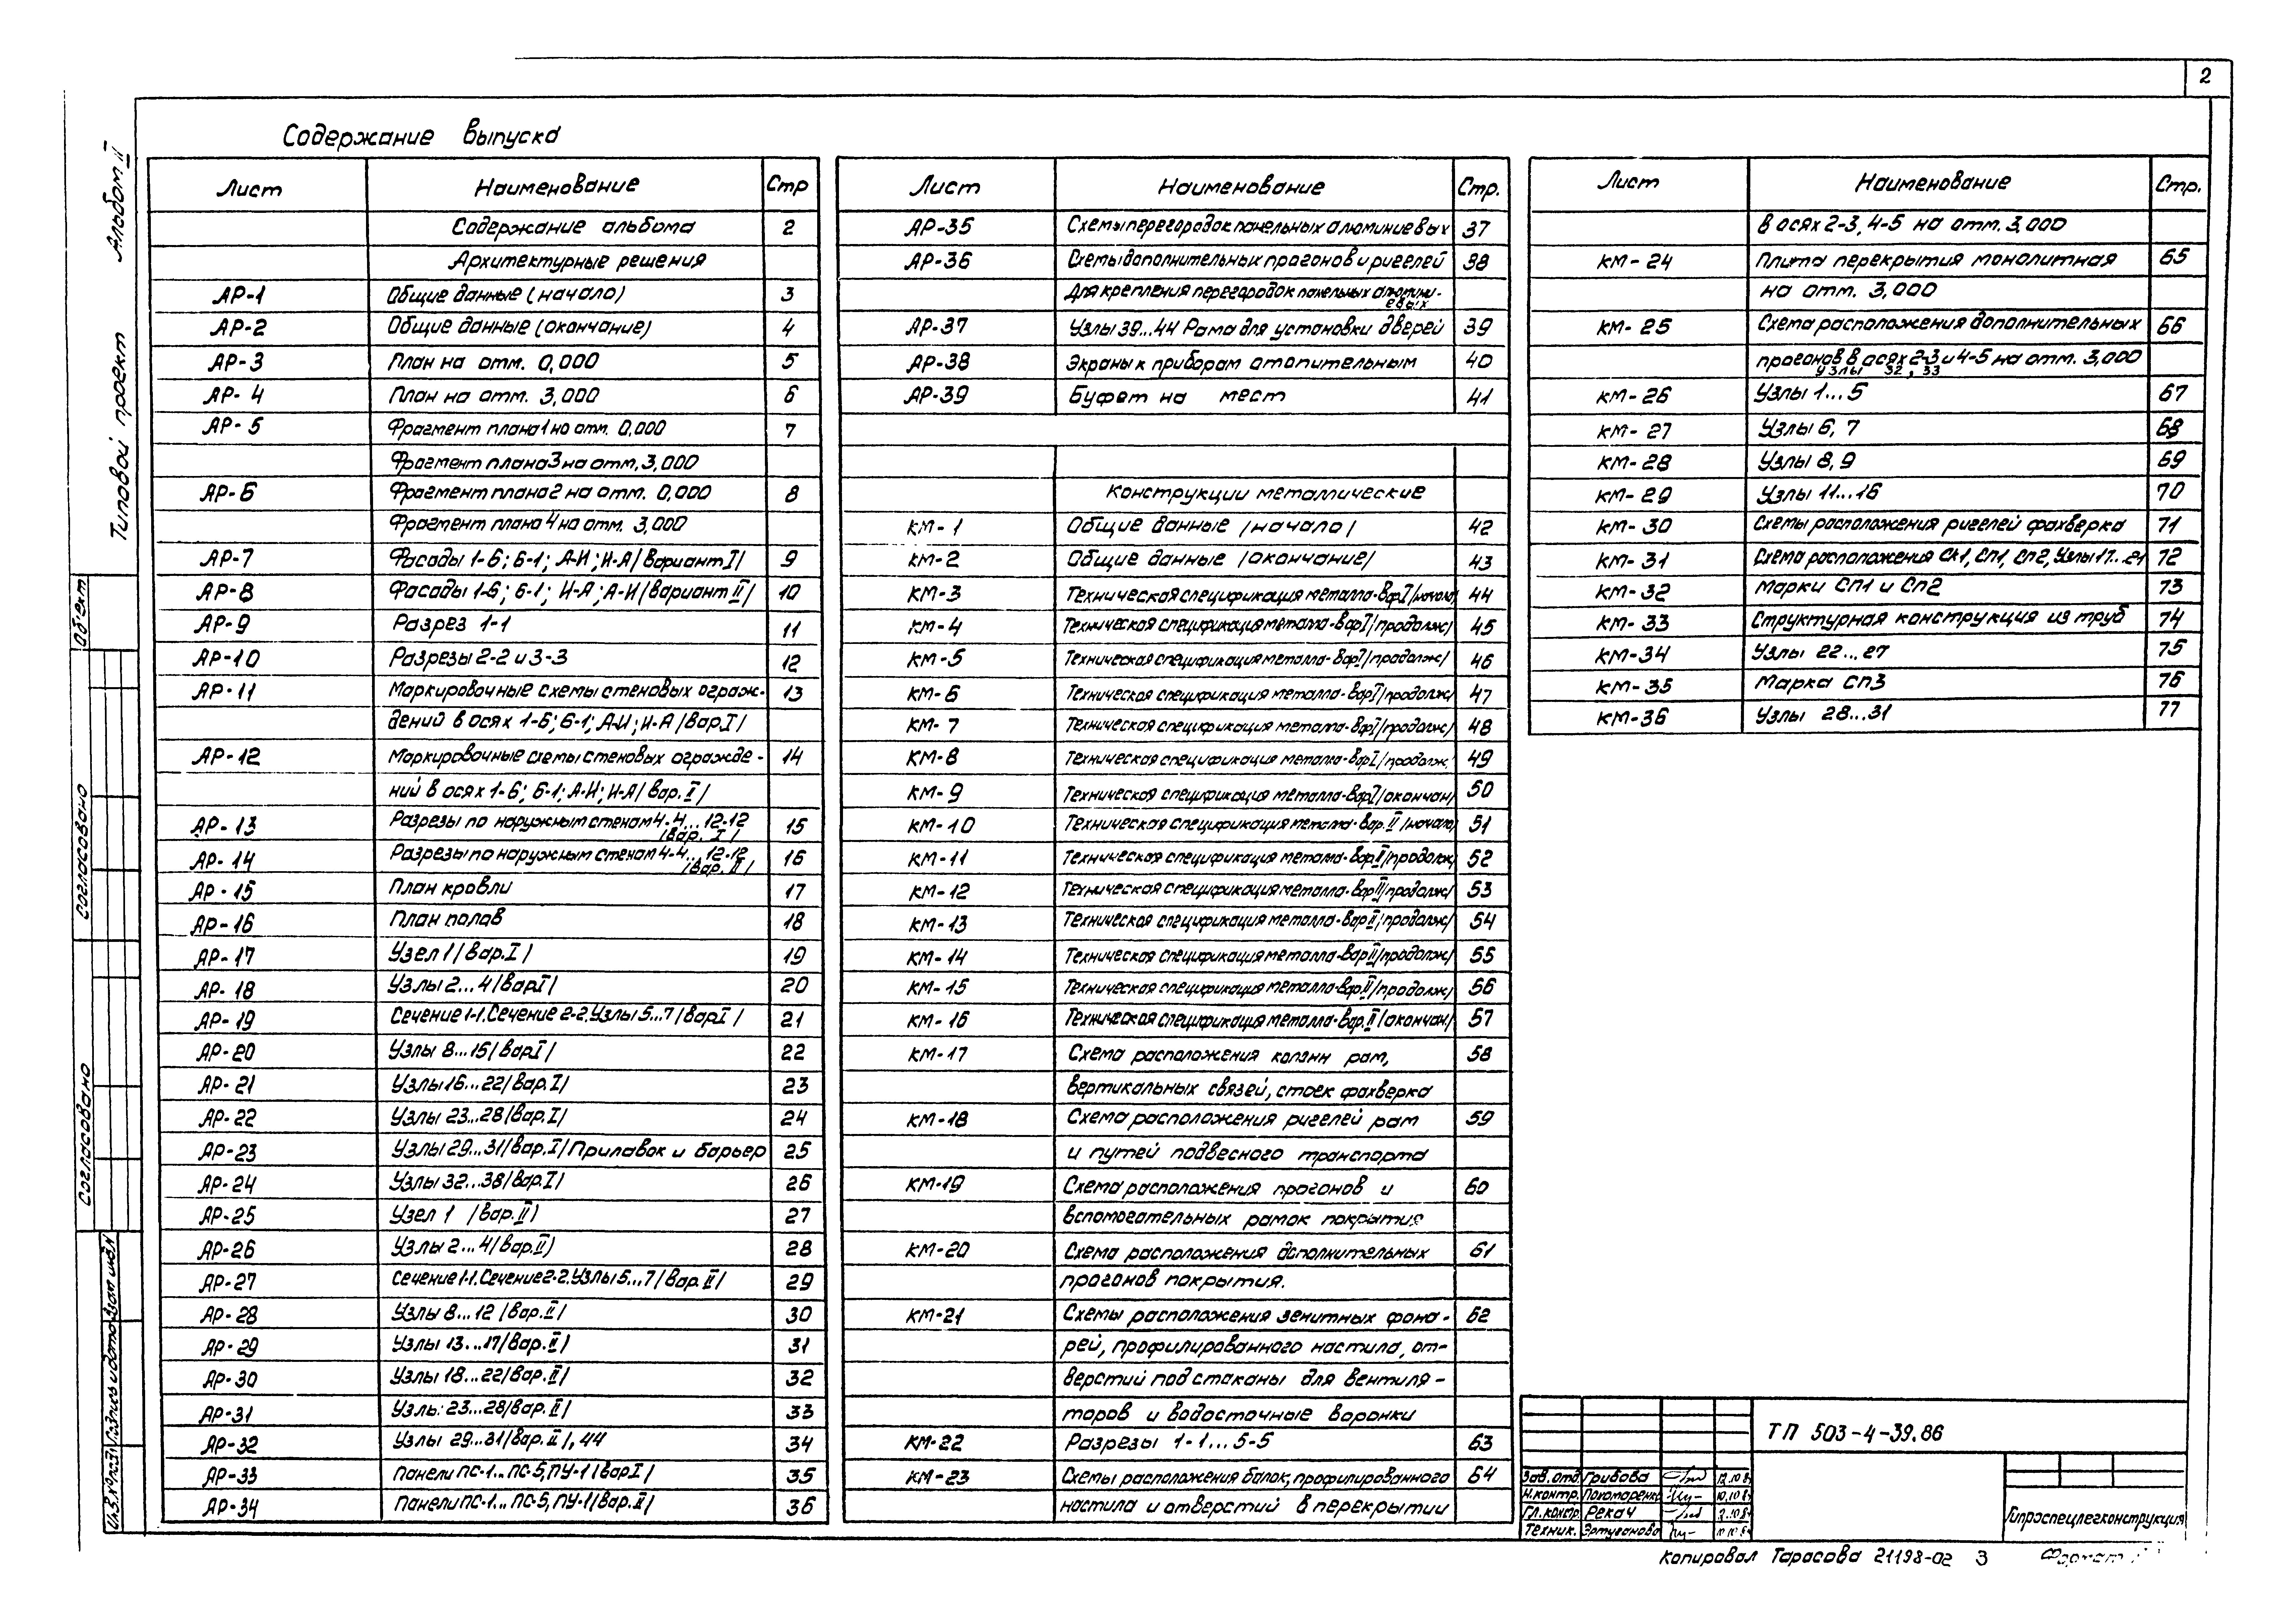 2
Содержание выпуска
Лист Наименование Стр
Содержание альбома 2
Архитектурные решения
АР-1 Общие данные (начало) 3
АР-2 Общие данные (окончание) 4
АР-3 План на отм. 0,000 5
АР-4 План на отм. 3,000 6
АР-5 Фрагмент плана 1 на отм. 0,000 7
Фрагмент плана 3 на отм. 3,000
АР-6 Фрагмент плана 2 на отм. 0,000 8
Фрагмент плана 4 на отм. 3,000
АР-7 Фасады 1-6; 6-1; А-И; И-А /Вариант I/ 9
АР-8 Фасады 1-6; 6-1; И-А; А-И /вариант II/ 10
АР-9 Разрез 1-1 11
АР-10 Разрезы 2-2 и 3-3 12
АР-11 Маркировочные схемы стеновых ограж- 13
дений в осях 1-6; 6-1; А-И; И-А /вар. I/
АР-12 Маркировочные схемы стеновых огражде- 14
ний в осях 1-6; 6-1; А-И; И-А /вар. II/
АР-13 Разрезы по наружным стенам 4-4...12-12 15
/вар. I/
АР-14 Разрезы по наружным стенам 4-4...12-12 16
/вар. II/
АР-15 План кровли 17
АР-16 План полов 18
АР-17 Узел 1 /вар. I/ 19
АР-18 Узлы 2...4 /вар I/ 20
АР-19 Сечение 1-1. Сечение 2-2. Узлы 5...7 /вар I/ 21
АР-20 Узлы 8...15 /вар I/ 22
АР-21 Узлы 16...22 /вар. I/ 23
АР-22 Узлы 23...28 /вар. I/ 24
АР-23 Узлы 29...31 /вар. I/ Прилавок и барьер 25
АР-24 Узлы 32...38 /вар. I/ 26
АР-25 Узел 1 /вар. II/ 27
АР-26 Узлы 2...4 /вар. II/ 28
АР-27 Сечение 1-1. Сечение 2-2. Узлы 5...7 /вар. II/ 29
АР-28 Узлы 8...12 /вар. II/ 30
АР-29 Узлы 13...17 /вар. II/ 31
АР-30 Узлы 18...22 /вар. II/ 32
АР-31 Узлы 23...28 /вар. II/ 33
АР-32 Узлы 29...31 /вар. II/, 44 34
АР-33 Панели ПС-1...ПС-5, ПУ-1 /вар I/ 35
АР-34 Панели ПС-1...ПС-5, ПУ-1 /вар. II/ 36
Лист Наименование Стр.
АР-35 Схемы перегородок панельных алюминиевых 37
АР-36 Схемы дополнительных прогонов и ригелей 38
для крепления перегородок панельных алюмини-
евых
АР-37 Узлы 39...44 Рама для установки дверей 39
АР-38 Экраны к приборам отопительным 40
АР-39 Буфет на мест 41
Конструкции металлические
КМ-1 Общие данные /начало/ 42
КМ-2 Общие данные /окончание/ 43
КМ-3 Техническая спецификация металла-Вар. I /начало/ 44
КМ-4 Техническая спецификация металла-Вар I /продолж/ 45
КМ-5 Техническая спецификация металла-Вар I /продолж/ 46
КМ-6 Техническая спецификация металла-Вар I /продолж/ 47
КМ-7 Техническая спецификация металла-Вар I /продолж/ 48
КМ-8 Техническая спецификация металла-Вар I /продолж. 49
КМ-9 Техническая спецификация металла-Вар I /окончан/ 50
КМ-10 Техническая спецификация металла-Вар. II /начало/ 51
КМ-11 Техническая спецификация металла-Вар II /продолж/ 52
КМ-12 Техническая спецификация металла-Вар II /продолж/ 53
КМ-13 Техническая спецификация металла-Вар II /продолж/ 54
КМ-14 Техническая спецификация металла-Вар II /продолж/ 55
КМ-15 Техническая спецификация металла-Вар. II /продолж/ 56
КМ-16 Техническая спецификация металла-Вар. II /окончан/ 57
КМ-17 Схема расположения колонн рам, 58
вертикальных связей, стоек фахверка
КМ-18 Схема расположения ригелей рам 59
и путей подвесного транспорта
КМ-19 Схема расположения прогонов и 60
вспомогательных рамок покрытия
КМ-20 Схема расположения дополнительных 61
прогонов покрытия.
КМ-21 Схемы расположения зенитных фона- 62
рей, профилированного настила, от-
верстий под стаканы для вентиля-
торов и водосточные воронки
КМ-22 Разрезы 1-1...5-5 63
КМ-23 Схемы расположения балок, профилированного 64
настила и отверстий в перекрытии
Лист Наименование Стр.
в осях 2-3, 4-5 на отм. 3,000
КМ-24 Плита перекрытия монолитная 65
на отм. 3,000
КМ-25 Схема расположения дополнительных 66
прогонов в осях 2-3 и 4-5 на отм. 3,000
узлы 32, 33
КМ-26 Узлы 1...5 67
КМ-27 Узлы 6, 7 68
КМ-28 Узлы 8, 9 69
КМ-29 Узлы 11...16 70
КМ-30 Схемы расположения ригелей фахверка 71
КМ-31 Схема расположения СК1, СП1, СП2, Узлы 17...21 72
КМ-32 Марки СП1 и СП2 73
КМ-33 Структурная конструкция из труб 74
КМ-34 Узлы 22...27 75
КМ-35 Марка СП3 76
КМ-36 Узлы 28...31 77
Типовой проект Альбом II
Об'ект
Согласовано
Согласовано
Инв.№подл Подпись и дата Взам инв.N
ТП 503-4-39.86
Зав.отд. Грибова
Н.контр. Пономаренко
Гл.констр. Рекач
Техник. Эртуганова
Гипроспецлегконструкция
Копировал Тарасова 21198-02 3 Формат